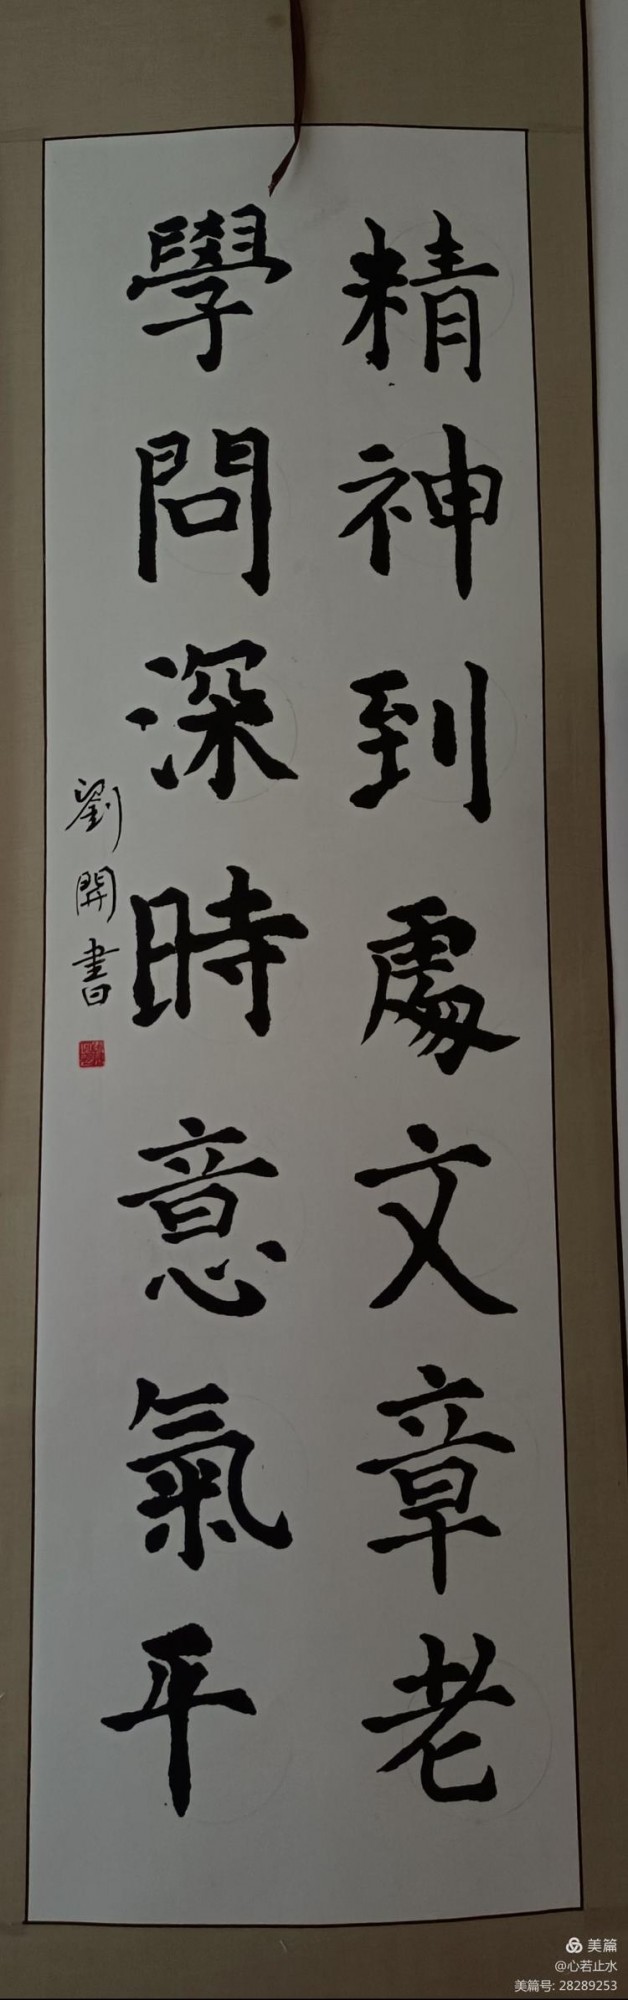 精神到處文章老
學問深時意氣平
劉開書
美篇
@心若止水
美篇号: 28289253